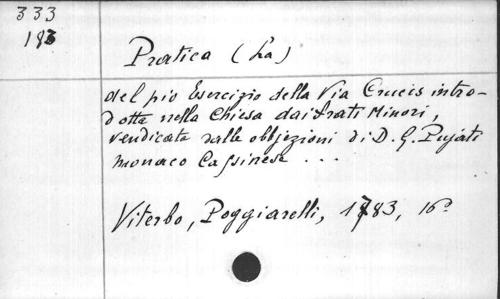 333
183
Pratica (La)
del pio Esercizio della Via Crucis intro-
dotta nella Chiesa dai Frati Minori,
vendicata dalle obbjezioni di D. G. Pujati
monaco Cassinese ...
Viterbo, Poggiarelli, 1783, 16º